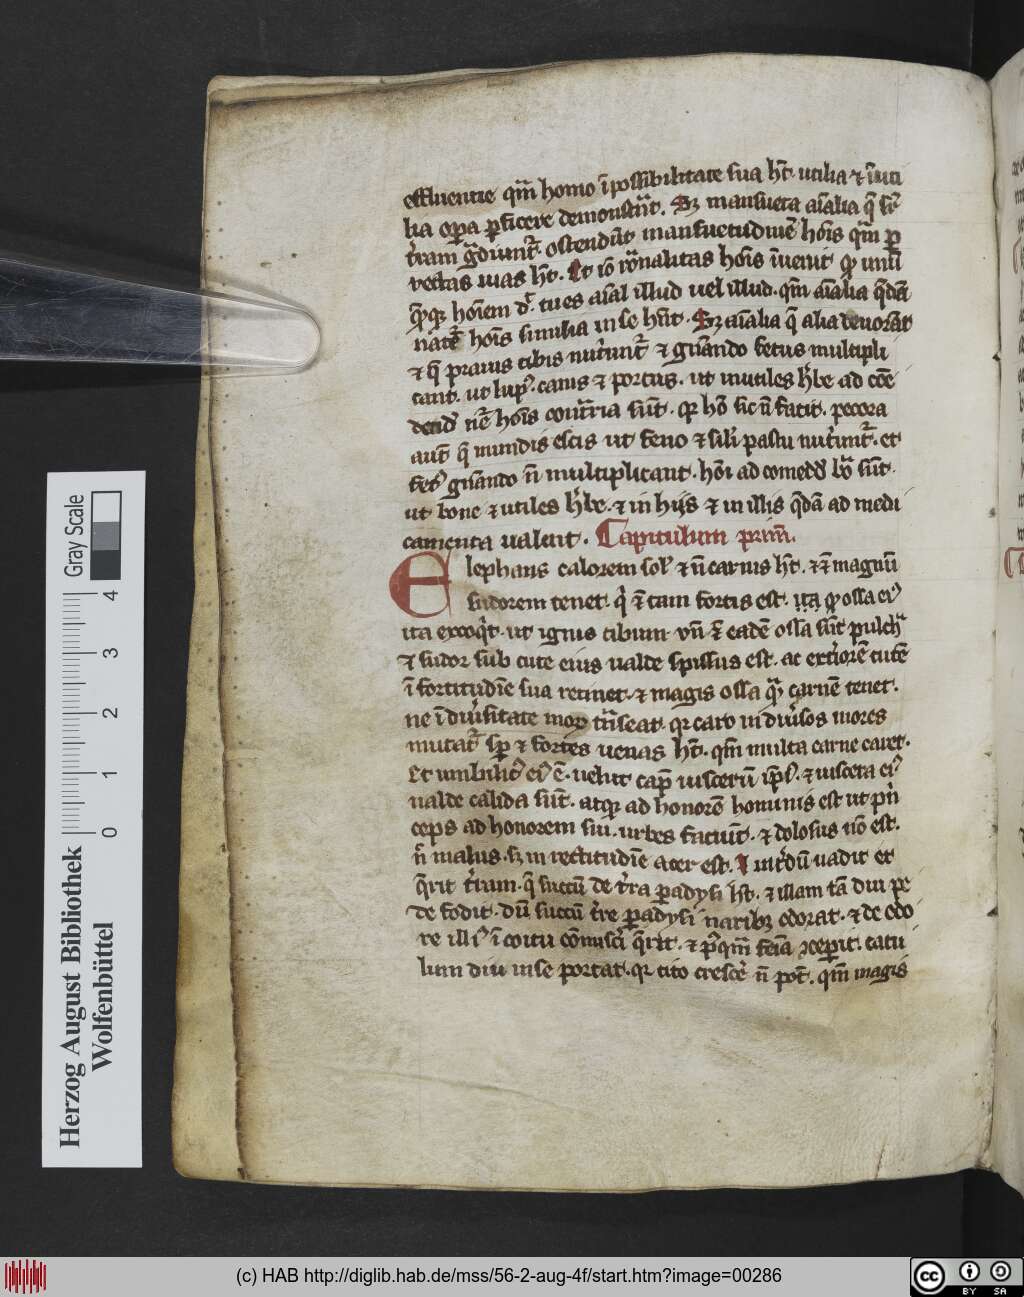 effluentie qm̄ homo īpossibilitate sua hͭ. utilia ⁊ īuti
lia oꝑa ꝑficere demonstͣt. Sꝫ mansueta aīalia q̄ sr̄
tr̄am gͣdiunt᷑. ostendūt mansuetudinē hoīs qm̄ ꝑ
rectas uias hͭ. Et iō rōnalitas hoīs īuenit qꝫ unū
qͦꝫqꝫ hoīem dr̄. tu es aīal illud uel illud. qm̄ aīalia qͣdā
natͤ hoīs similia in se hn̄t. Sꝫ aīalia q̄ alia deuorāt
⁊ q̄ prauis cibis nut'unt᷑ ⁊ gn̄ando fetus multipli
cant. ut lupꝰ. canis ⁊ porcus. ut inutiles hͤbe ad cōe
dend' nͤ hoīs contͣria sūt. qr hō sic n̄ facit. pecora
aut̄ q̄ mundis escis ut feno ⁊ sil'i pastu nut'unt᷑. et
fetꝰ gn̄ando n̄ multiplicant. hōi ad comedd' bōͣ sūt.
ut bone ⁊ utiles hͤbe. ⁊ in hijs ⁊ in illis qͣdā ad medi
camenta ualent. Capitulum prim̄.
Elephans calorem solꝰ ⁊ n̄ carnis hͭ. ⁊ ē magnū
sudorem tenet. qͥ ē tam fortis est. ita qꝫ ossa eiꝰ
ita excoqͥt. ut ignis cibum. vn̄ ⁊ eadē ossa sūt pulchͣ
⁊ sudor sub cute eius ualde spissus est. ac ext'iorē cutē
ī fortitudīe sua retinet. ⁊ magis ossa qͣꝫ carnē tenet.
ne ī diu'sitate moꝝ tn̄seat. qr caro in diu'sos mores
mutat᷑ sꝑ ⁊ fortes uenas hͭ. qm̄ multa carne caret.
Et umbilicꝰ eiꝰ ē. uelut capꝰ uiscerū ipsiꝰ. ⁊ uiscera eiꝰ
ualde calida sūt. atqꝫ ad honorē hominis est ut pn̄
ceps ad honorem sui. urbes faciūt. ⁊ dolosus nō est.
n̄ malus. sꝫ in rectitudīe acer est. int'dū uadit et
q̄rit t'ram. q̄ succū de t'ra ꝑadysi hͭ. ⁊ illam tā diu pe
de fodit. dū succū t're ꝑadysi naribꝫ odorat. ⁊ de odo
re illiꝰ ī coitu cōiūsci q̄rit. ⁊ pꝰqm̄ feīa ɔcepit. catu
lum diu in se portat. qr cito crescͤe n̄ pōt. qm̄ magis
Gray Scale
0 1 2 3 4
Herzog August Bibliothek
Wolfenbüttel
(c) HAB http://diglib.hab.de/mss/56-2-aug-4f/start.htm?image=00286
cc BY SA